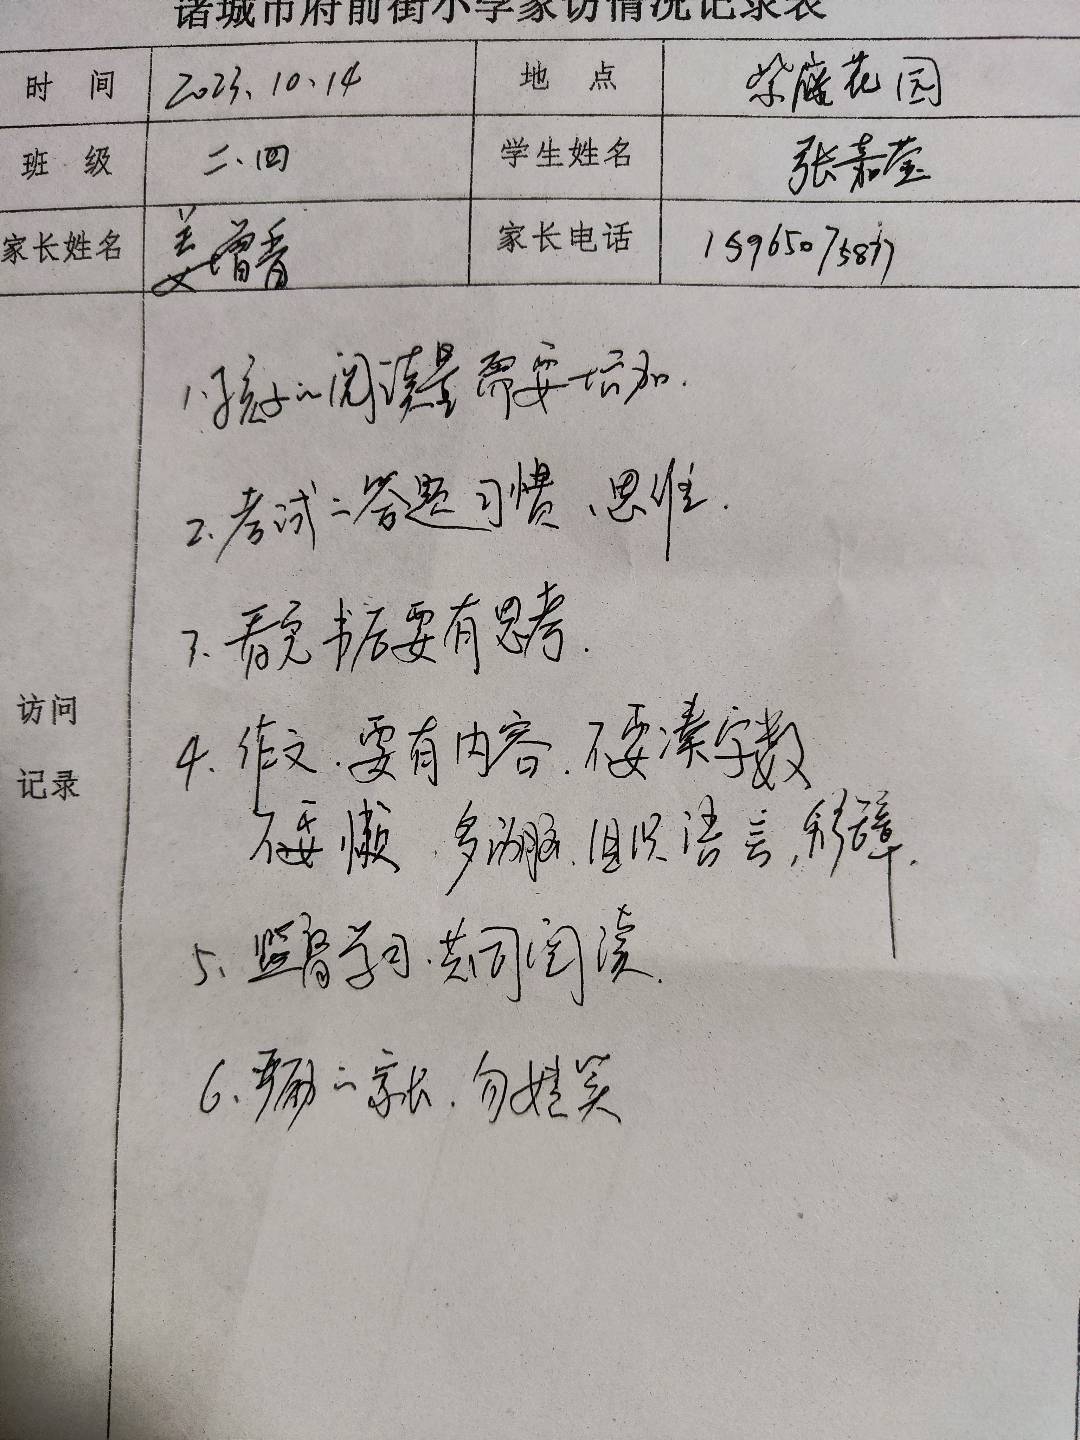 诸城市府前街小学家访情况记录表
时 间 2023.10.14 地 点 紫薇花园
班 级 二.四 学生姓名 张嘉莹
家长姓名 姜增香 家长电话
访问
记录
1.孩子的阅读量需要增加.
2.考试的答题习惯、思维.
3.看完书后要有思考.
4.作文.要有内容.不要凑字数
不要懒.多动脑.组织语言,
5.监督学习.共同阅读.
6.的家长.